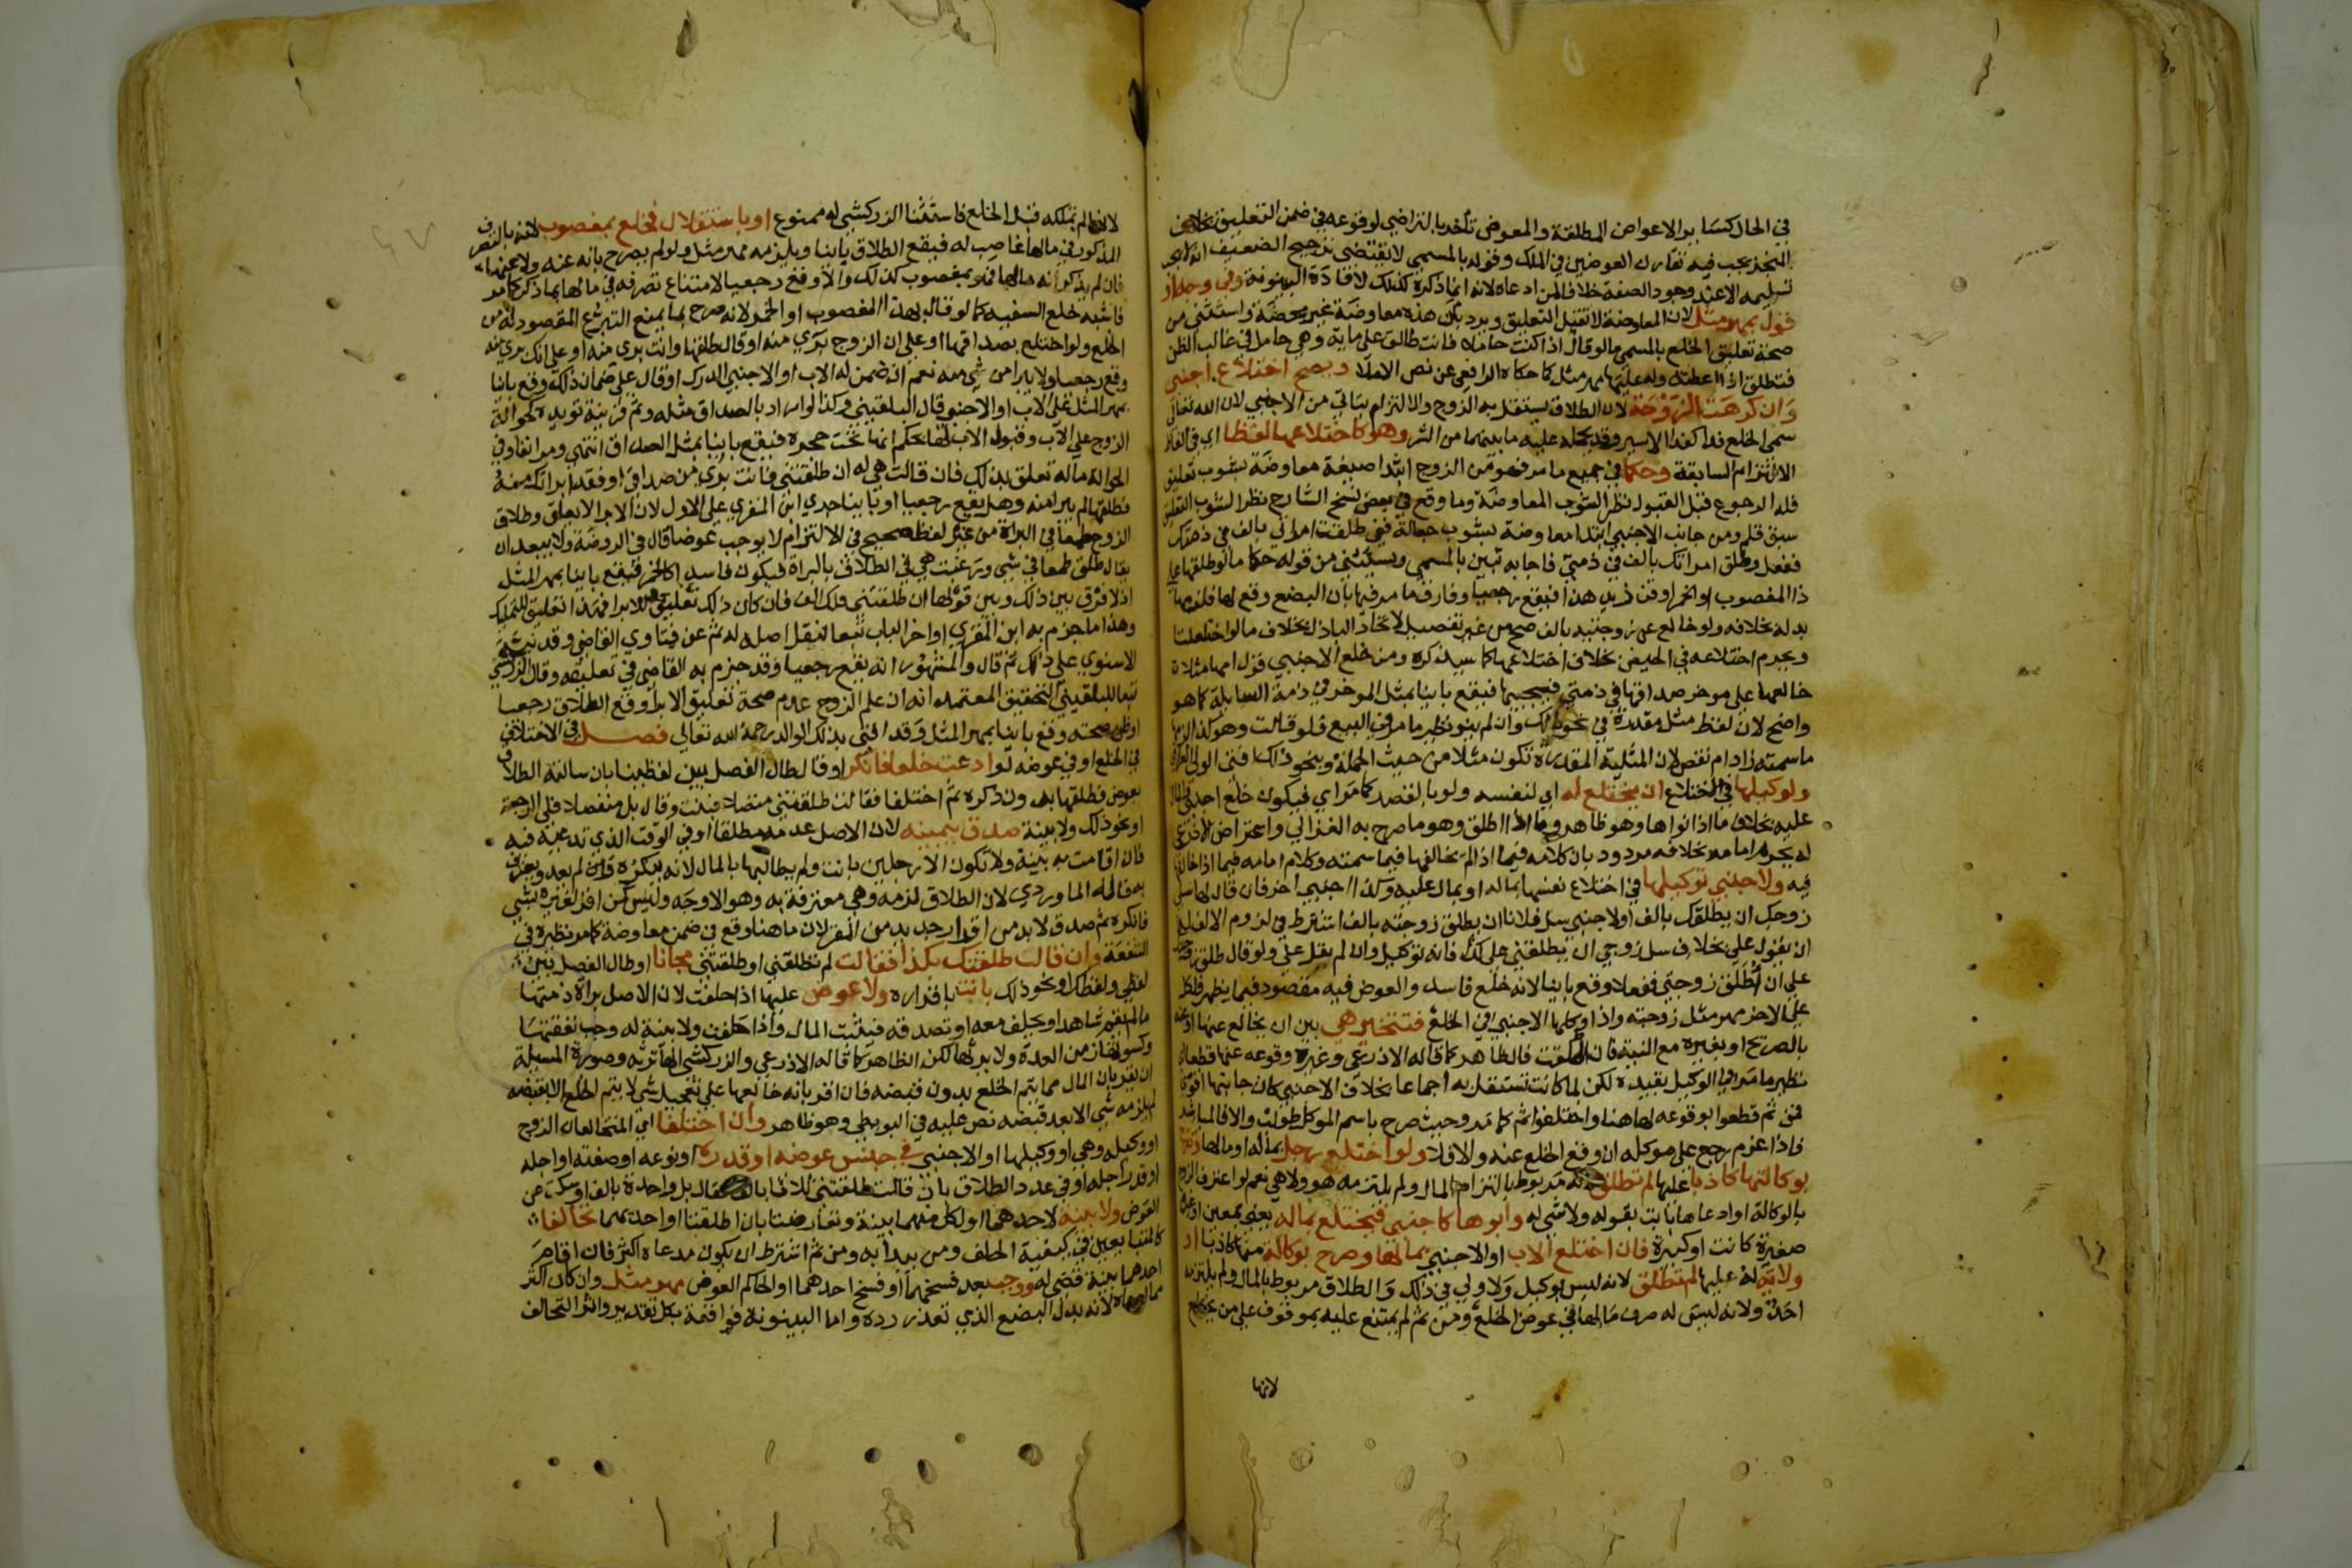 في الحال كسائر الاعواض المطلقة والمعوض تأخر بالتراضي لوقوعه في ضمن التعليق بخلاف
المنجز يجب فيه تقارن العوضين في الملك وقوله بالمسمى لا يقتضى ترجيح الضعيف انه لا يجب
تسليمه الا عند وجود الصفة خلافا لمن ادعاه لانه انما ذكره كذلك لافادة البينونة وفي وجه او
قول بمهر مثل لان المعاوضة لا تقبل التعليق ويرد بان هذه معاوضة غير محضة واستثنى من
صحة تعليق الخلع بالمسمى مالو قال اذا كنت حاملا فانت طالق على ماية وهي حامل في غالب الظن
فتطلق اذا اعطته وله عليها مهر مثل كما حكاه الرافعي عن نص الاملا ويصح اختلاع اجنبي
وان كرهت الزوجة لان الطلاق يستقل به الزوج والالتزام يتاتى من الاجنبي لان الله تعالى
سمى الخلع فداء كفدا الاسير وقد يحمله عليه ما بينهما من الشر وهو كاختلاعها لفظا اي في الفاظ
الالتزام السابقة وحكما في جميع ما مر فهو من الزوج ابتدا صيغة معاوضة بشوب تعليق
فله الرجوع قبل القبول نظرا لشوب المعاوضة وما وقع في بعض نسخ الشارح نظرا لشوب التعليق
سبق قلم ومن جانب الاجنبي ابتدا معاوضة بشوب جعالة ففي طلقت امراتي بالف في ذمتك
ففعل وطلق امراتك بالف في ذمتي فاجابه تبين بالمسمى ويستثنى من قوله حكما مالو طلقها على
ذا المغصوب او الخمر او قن زيد هذا فيقع رجعيا وفارق ما مر فيها بان البضع وقع لها فلزمها
بدله بخلافه ولو خالع عن زوجتيه بالف صح من غير تفصيل لاتحاد الباذل بخلاف مالو اختلعتا
ويحرم اختلاعه في الحيض بخلاف اختلاعها كما سيذكره ومن خلع الاجنبي قول امها مثلا
خالعها على موخر صداقها في ذمتي فيجيبها فيقع باينا بمثل الموخر في ذمة السايلة كما هو
واضح لان لفظ مثل مقدرة في نحو ذلك وان لم ينو نظير ما مر في البيع فلو قالت وهو كذا لزمها
ما سمته زاد ام نقص لان المثلية المقدرة تكون مثلا من حيث الجملة وبنحو ذلك افتى الولي العراقي
ولوكيلها في الاختلاع ان يختلع له اي لنفسه ولو بالقصد كما مر اي فيكون خلع اجنبي والمال
عليه بخلاف ما اذا نواها وهو ظاهر وما اذا اطلق وهو ما صرح به الغزالي واعتراض الاذرعي
له بجزم امامه بخلافه مردود بان كلامه فيما اذا لم يخالفها فيما سمته وكلام امامه فيما اذا خالفها
فيه ولاجنبي توكيلها في اختلاع نفسها بماله او بمال عليه وكذا اجنبي اخر فان قال لها سلي
زوجك ان يطلقك بالف او لاجنبي سل فلانا ان يطلق زوجته بالف اشترط في لزوم الالف له
ان يقول علي بخلاف سل زوجي ان يطلقني على كذا فانه توكيل وان لم يقل علي ولو قال طلق زوجتك
على ان اطلق زوجتي ففعلا وقع باينا لانه خلع فاسد والعوض فيه مقصود فيما يظهر فلكل
على الاخر مهر مثل زوجته واذا وكلها الاجنبي في الخلع فتتخير هي بين ان تخالع عنها او عنه
بالصريح او بغيره مع النية فان اطلقت فالظاهر كما قاله الاذرعي وغيره وقوعه عنها قطعا
نظير ما مر في الوكيل بقيده لكن لما كانت تستقل به اجماعا بخلاف الاجنبي كان جانبها اقوى
فمن ثم قطعوا بوقوعه لها هنا واختلفوا ثم كما مر وحيث صرح باسم الموكل طولب والا فالمباشر
فاذا غرم رجع على موكله ان وقع الخلع عنه والا فلا ولو اختلع رجل بماله او مالها وصرح
بوكالتها كاذبا عليها لم تطلق لانه مربوط بالتزام المال ولم يلتزمه هو ولا هي نعم لو اعترف الزوج
بالوكالة او ادعاها بانت بقوله ولا شي له وابوها كاجنبي فيختلع بماله يعني بمعين او غيره
صغيرة كانت او كبيرة فان اختلع الاب او الاجنبي بمالها وصرح بوكالة منها كاذبا او
ولاية له عليها لم تطلق لانه ليس بوكيل ولا ولي في ذلك والطلاق مربوط بالمال ولم يلتزمه
احد ولانه ليس له صرف مالها في عوض الخلع ومن ثم لم يمتنع عليه بموقوف على من يختلع
لانها
لانها لم تملكه قبل الخلع فاستثنا الزركشي له ممنوع او باستقلال فخلع بمغصوب لانه بالتصرف
المذكور في مالها غاصب له فيقع الطلاق باينا ويلزمه مهر مثل ولو لم يصرح بانه عنه ولا عنها
فان لم يذكر انه مالها فهو بمغصوب كذلك والا وقع رجعيا لامتناع تصرفه في مالها بما ذكر كما مر
فاشبه خلع السفيه كما لو قال بهذا المغصوب او الخمر لانه صرح بما يمنع التبرع المقصود له من
الخلع ولو اختلع بصداقها او على ان الزوج بري منه او قال طلقها وانت بري منه او على انك بري منه
وقع رجعيا ولا يبرا من شي منه نعم ان ضمن له الاب او الاجنبي الدرك او قال على ضمان ذلك وقع باينا
بمهر المثل على الاب او الاجنبي قال البلقيني وكذا لو اراد بالصداق مثله وثم قرينة تويده كحوالة
الزوج على الاب وقبول الاب لها بحكم انها تحت حجره فيقع باينا بمثل الصداق انتهى ومر انفا في
الحوالة ماله تعلق بذلك فان قالت هي له ان طلقتني فانت بري من صداقي او فقد ابراتك منه
فطلقها لم يبرا منه وهل يقع رجعيا او باينا جرى ابن المقري على الاول لان الابرا لا يعلق وطلاق
الزوج طمعا في البراة من غير لفظ صحيح في الالتزام لا يوجب عوضا قال في الروضة ولا يبعد ان
يقال طلق طمعا في شي ورغبت هي في الطلاق بالبراة فيكون فاسدا كالخمر فيقع باينا بمهر المثل
اذ لا فرق بين ذلك وبين قولها ان طلقتني فلك الف فان كان ذلك تعليقا للابرا فهذا تعليق للتمليك
وهذا ما جزم به ابن المقري اواخر الباب تبعا لنقل اصله له ثم عن فتاوي القاضي وقد نبه
الاسنوي على ذلك ثم قال والمشهور انه يقع رجعيا وقد جزم به القاضي في تعليقه وقال الزركشي
تبعا للبلقيني التحقيق المعتمد انه ان علم الزوج عدم صحة تعليق الابرا وقع الطلاق رجعيا
او ظن صحته وقع باينا بمهر المثل وقد افتى بذلك الوالد رحمه الله تعالى فصل في الاختلاف
في الخلع او في عوضه لو ادعت خلعا فانكر او قال طال الفصل بين لفظينا بان سالته الطلاق
بعوض فطلقها بدون ذكره ثم اختلفا فقالت طلقتني متصلا فبنت وقال بل منفصلا فلي الرجعة
او نحو ذلك ولا بينة صدق بيمينه لان الاصل عدمه مطلقا او في الوقت الذي تدعيه فيه
فان اقامت به بينة ولا تكون الا رجلين بانت ولم يطالبها بالمال لانه ينكره فان لم يعد ويعترف
به قاله الماوردي لان الطلاق لزمه وهي معترفة به وهو الاوجه وليس كمن اقر لغيره بشي
فانكره ثم صدق لا بد من اقرار جديد من المقر لان ما هنا وقع في ضمن معاوضة كما مر نظيره في
الشفعة وان قال طلقتك بكذا فقالت لم تطلقني او طلقتني مجانا او طال الفصل بين
لفظي ولفظك او نحو ذلك بانت باقراره ولا عوض عليها اذا حلفت لان الاصل براة ذمتها
ما لم يقم شاهدا ويحلف معه او تصدقه فيثبت المال واذا حلفت ولا بينة له وجب نفقتها
وكسوتها زمن العدة ولا يرثها لكن الظاهر كما قاله الاذرعي والزركشي انها ترثه وصورة المسيلة
ان يقر بان المال مما يتم الخلع بدون قبضه فان اقر بانه خالعها على تعجيل شي لا يتم الخلع الا بقبضه
لم يلزمه شي الا بعد قبضه نص عليه في البويطي وهو ظاهر وان اختلفا اي المتخالعان الزوج
او وكيله وهي او وكيلها او الاجنبي في جنس عوضه او قدره او نوعه او صفته او اجله
او قدر اجله او في عدد الطلاق بان قالت طلقتني ثلاثا بالف فقال بل واحدة بالف او سكت عن
العوض ولا بينة لاحدهما او لكل منهما بينة وتعارضتا بان اطلقتا او احديهما تحالفا
كالمتبايعين في كيفية الحلف ومن يبدا به ومن ثم اشترط ان يكون مدعاه اكثر فان اقام
احدهما بينة قضي له ووجب بعد فسخهما او فسخ احدهما او الحاكم العوض مهر مثل وان كان اكثر
مما ادعاه لانه بدل البضع الذي تعذر رده واما البينونة فواقعة بكل تقدير واثر التحالف